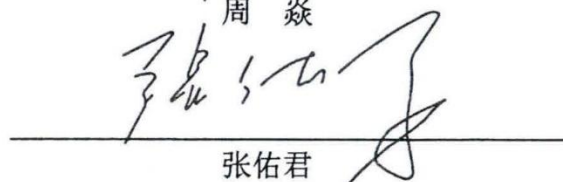 周 焱
张佑君
张佑君